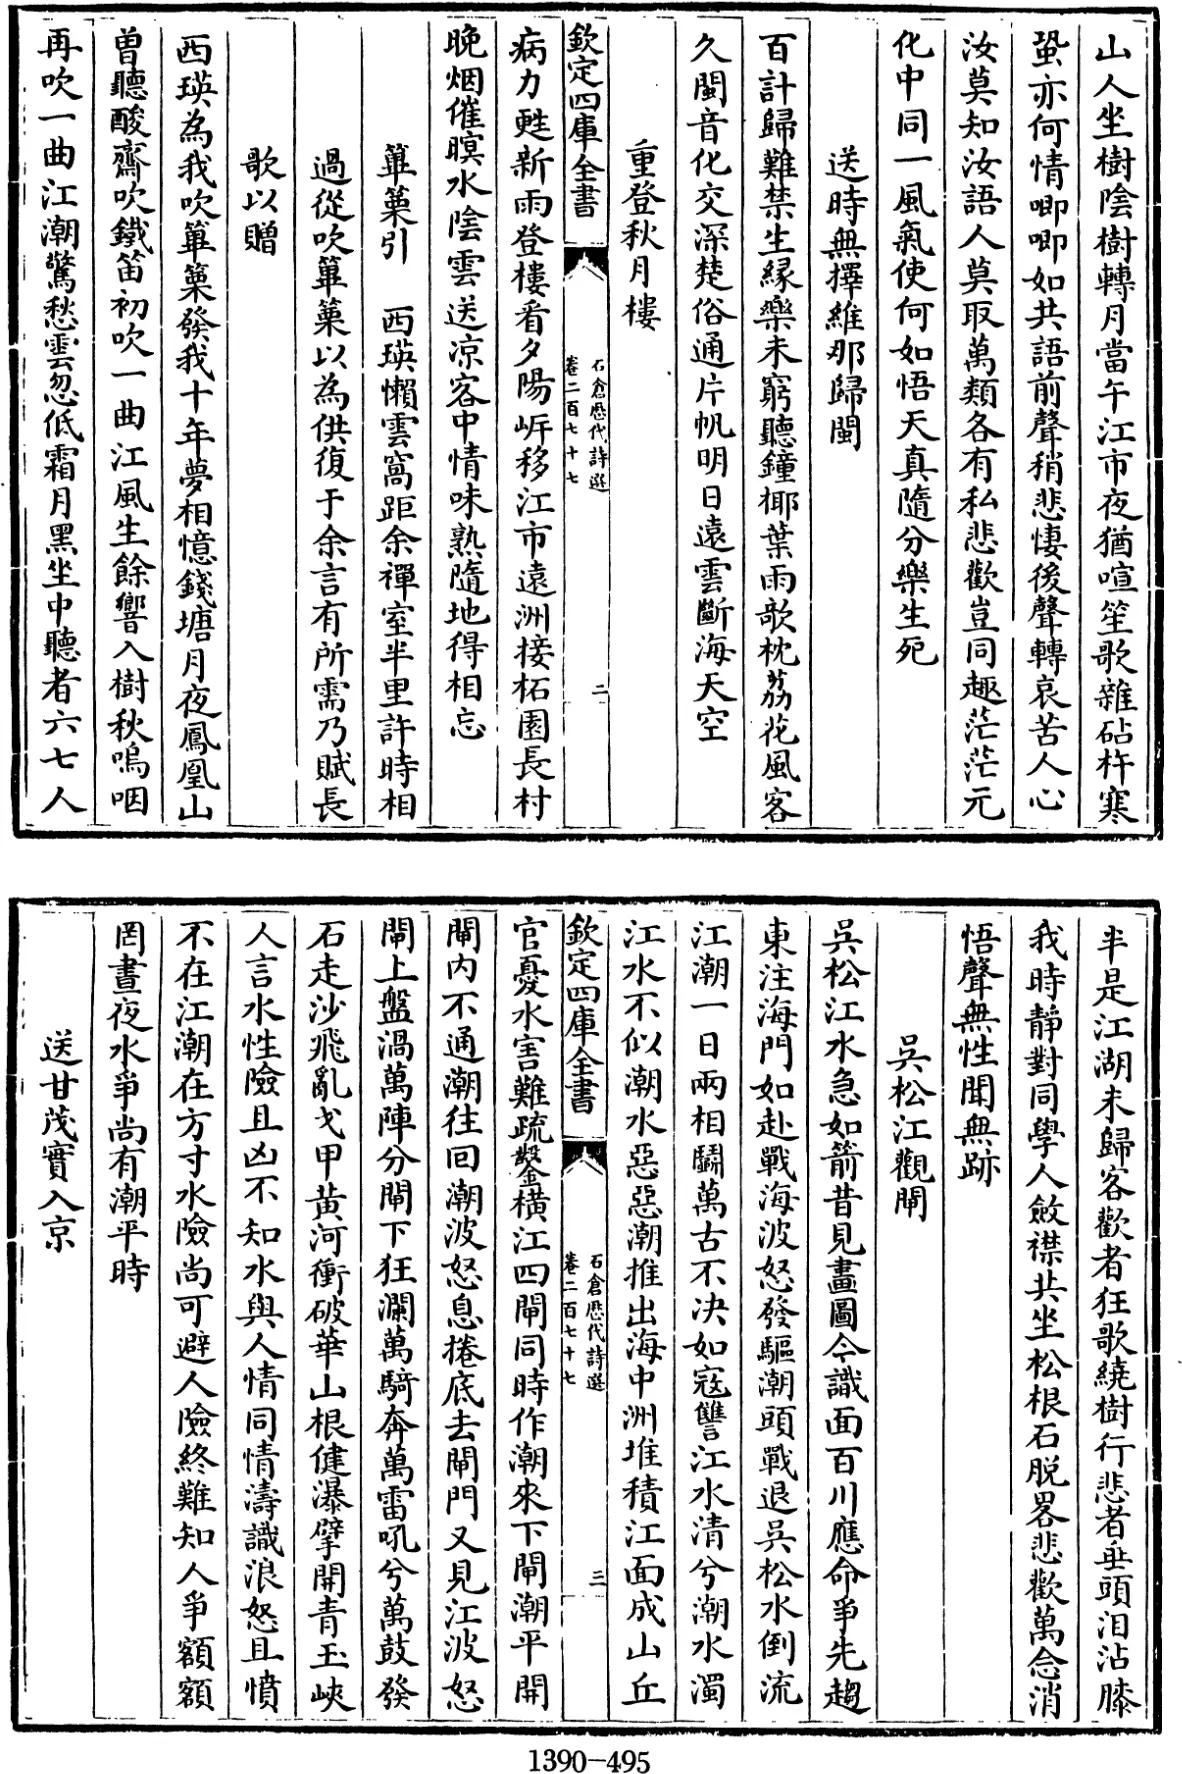 山人坐樹陰樹轉月當午江市夜猶喧笙歌雜砧杵寒
蛩亦何情唧唧如共語前聲稍悲悽後聲轉哀苦人心
汝莫知汝語人莫取萬類各有私悲歡豈同趣茫茫元
化中同一風氣使何如悟天真隨分樂生死
送時無擇維那歸閩
百計歸難禁生緣樂未窮聽鐘椰葉雨歌枕荔花風客
久閩音化交深楚俗通片帆明日遠雲斷海天空
重登秋月樓
欽定四庫全書
石倉歷代詩選
卷二百七十七
二
病力甦新雨登樓看夕陽㟁移江市遠洲接柘園長村
晚烟催暝水陰雲送凉客中情味熟隨地得相忘
篳篥引 西瑛懶雲窩距余禪室半里許時相
過從吹篳篥以為供復于余言有所需乃賦長
歌以贈
西瑛為我吹篳篥發我十年夢相憶錢塘月夜鳳凰山
曽聽酸齋吹鐵笛初吹一曲江風生餘響入樹秋嗚咽
再吹一曲江潮驚愁雲忽低霜月黑坐中聽者六七人
半是江湖未歸客歡者狂歌繞樹行悲者垂頭泪沾膝
我時靜對同學人斂襟共坐松根石脱畧悲歡萬念消
悟聲無性聞無跡
吳松江觀閘
吳松江水急如箭昔見畫圖今識面百川應命爭先趨
東注海門如赴戰海波怒發驅潮頭戰退吳松水倒流
江潮一日兩相鬭萬古不决如寇讐江水清兮潮水濁
江水不似潮水惡惡潮推出海中洲堆積江面成山丘
欽定四庫全書
石倉歷代詩選
卷二百七十七
三
官憂水害難疏鑿橫江四閘同時作潮來下閘潮平開
閘内不通潮往回潮波怒息捲底去閘門又見江波怒
閘上盤渦萬陣分閘下狂瀾萬騎奔萬雷吼兮萬鼓發
石走沙飛亂戈甲黄河衝破華山根健瀑擘開青玉峽
人言水性險且凶不知水與人情同情濤識浪怒且憤
不在江潮在方寸水險尚可避人險終難知人爭額額
罔晝夜水爭尚有潮平時
送甘茂實入京
1390-495